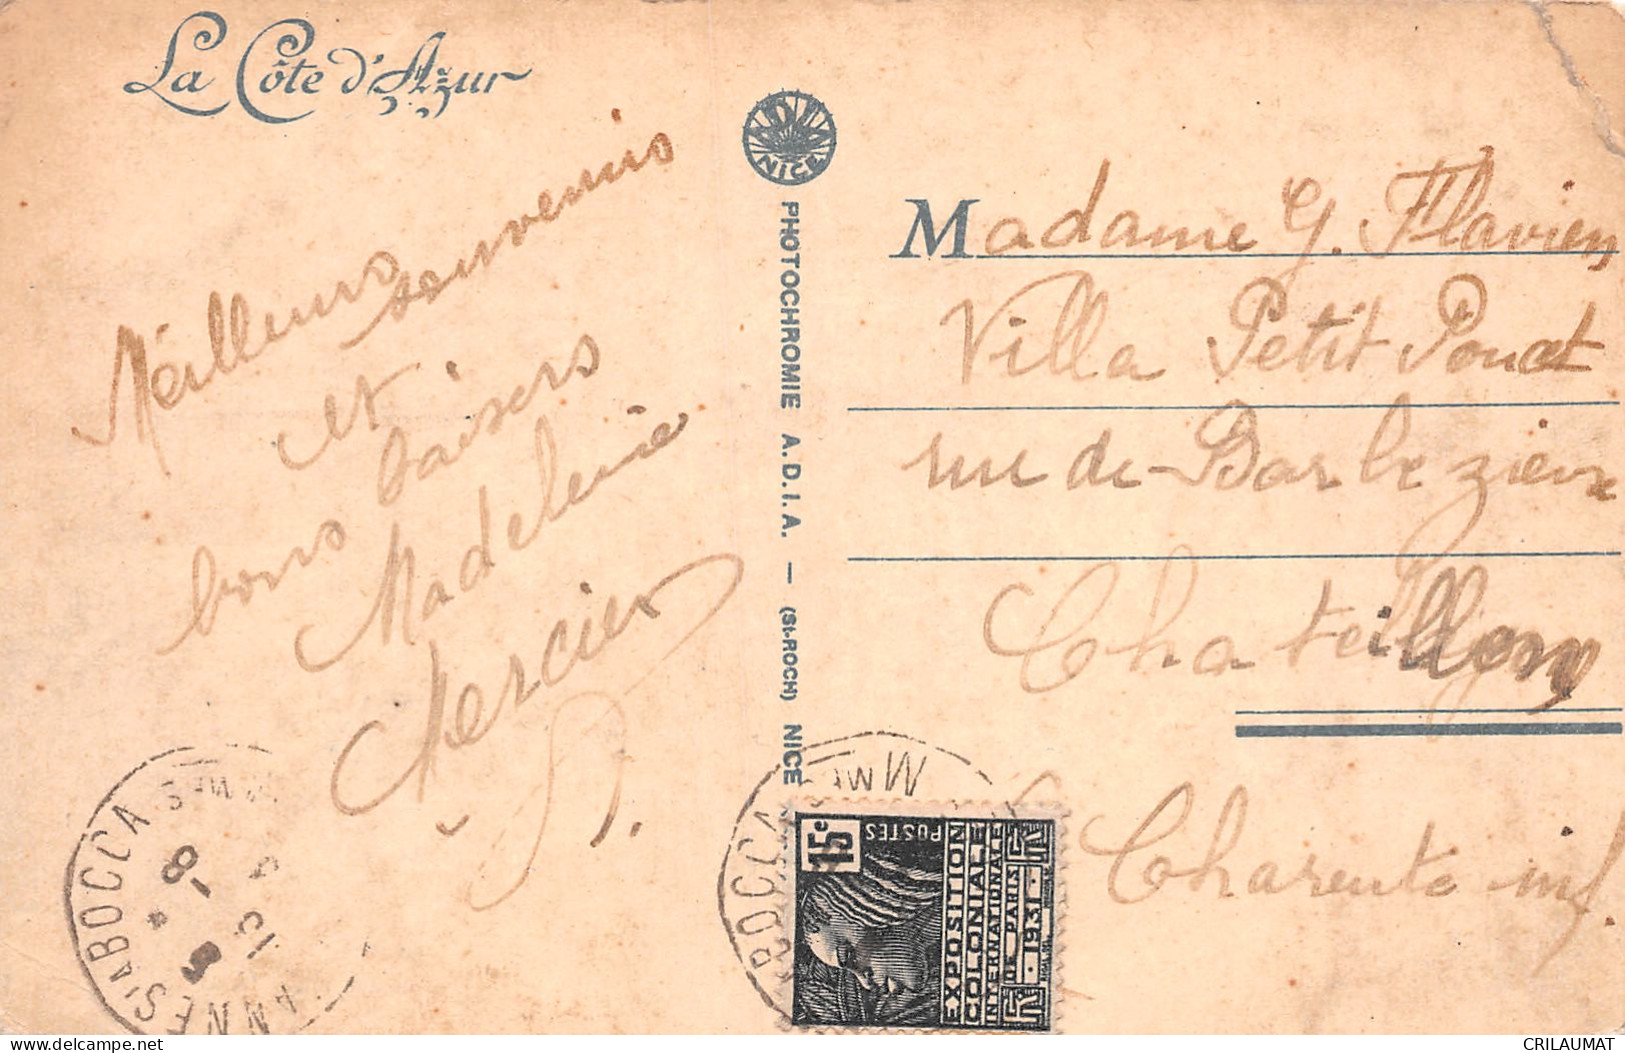 La Côte d'Azur
Meilleurs souvenirs
et
bons baisers
Madeleine
Mercier
NICE
PHOTOCHROMIE A.D.I.A. — (St-ROCH) NICE
Madame G. Flavien
Villa Petit Poucet
rue de Barbezieux
Chatelaillon
Charente inf.
CANNES LA BOCCA
Mmes
LA BOCCA
Mmes
15c
POSTES
EXPOSITION
COLONIALE
INTERNATIONALE
DE PARIS
RF - 1931 - RF
CRILAUMAT